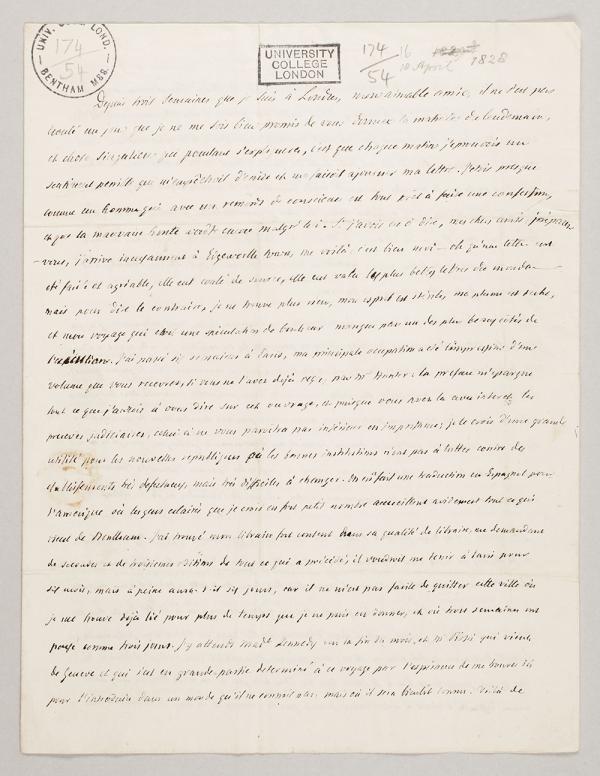 UNIV. COLL. LOND.
174
54
BENTHAM MSS.
UNIVERSITY
COLLEGE
LONDON
174
54
16
10 April
1828
Depuis trois semaines que je suis à Londres, mon aimable amie, il ne s'est pas
écoulé un jour que je ne me sois bien promis de vous donner la matinée du lendemain,
et chose singulière qui pourtant s'explique, c'est que chaque matin j'éprouvois un
sentiment pénible qui m'empêchoit d'écrire et me faisoit ajourner ma lettre. J'étois presque
comme un homme qui avec un remords de conscience est tout prêt à faire une confession,
et que la mauvaise honte arrête encore malgré lui. Si j'avois eu à dire, mes chers amis préparez
vous, j'arrive incessamment à Edgeville town, me voilà, c'est bien moi - oh qu'une lettre eut
été facile et agréable, elle eut coulé de source, elle eut valu les plus belles lettres du monde
mais pour dire le contraire, je ne trouve plus rien, mon esprit est stérile, ma plume est sèche,
et mon voyage qui étoit une spéculation de bonheur manque par un des plus beaux côtés de
l'exécution. J'ai passé six semaines à Paris, ma principale occupation a été l'impression d'un
volume que vous recevrez, si vous ne l'avez déjà reçu, par Mr Hunter: la préface m'épargne
tout ce que j'aurois à vous dire sur cet ouvrage, et puisque vous avez lu avec intérêt les
preuves judiciaires, celui ci ne vous paroîtra pas inférieur en importance; je le crois d'une grande
utilité pour les nouvelles républiques où les bonnes institutions n'ont pas à lutter contre des
établissements très défectueux, mais très difficiles à changer. On en fait une traduction en Espagnol pour
l'amérique où les gens éclairés que je crois en fort petit nombre accueillent avidement tout ce qui
vient de Bentham. J'ai trouvé mon libraire fort content dans sa qualité de libraire, me demandant
de secondes et de troisièmes éditions de tout ce qui a précédé; il voudroit me tenir à Paris pour
six mois, mais à peine aura-t-il six jours, car il ne m'est pas facile de quitter cette ville où
je me trouve déjà lié pour plus de temps que je ne puis en donner, et où trois semaines ont
passé comme trois jours. J'y attends Made Kennedy vers la fin du mois, et Mr Rossi qui vient
de Geneve et qui s'est en grande partie déterminé à ce voyage par l'espérance de me trouver ici
pour l'introduire dans un monde qu'il ne connoit pas mais où il sera bientôt connu. Voilà de